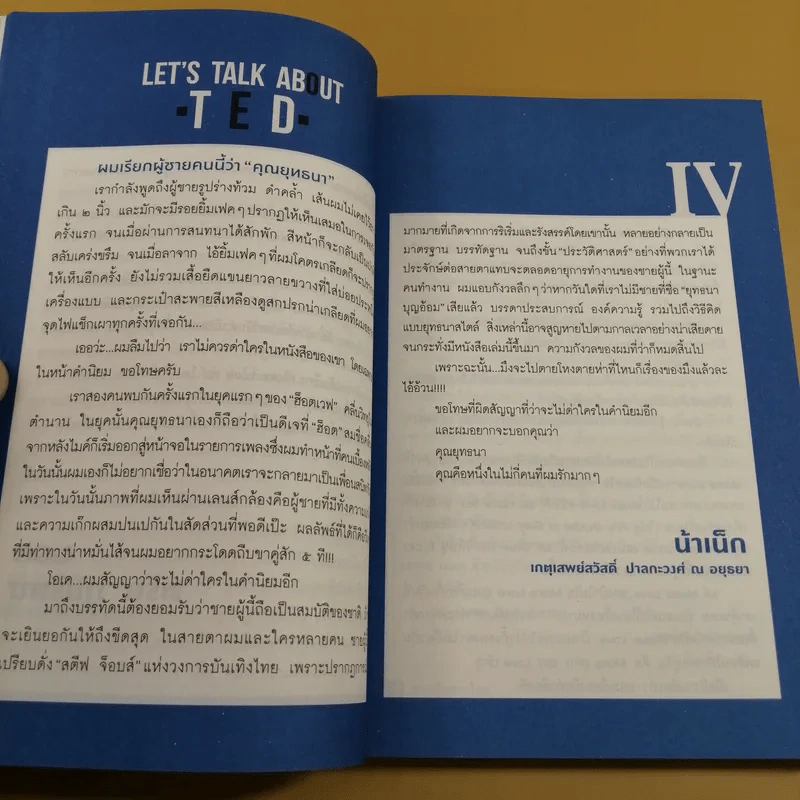 LET'S TALK ABOUT
·TED·
ผมเรียกผู้ชายคนนี้ว่า "คุณยุทธนา"
เรากำลังพูดถึงผู้ชายรูปร่างท้วม ดำคล้ำ เส้นผมไม่เคย
เกิน ๒ นิ้ว และมักจะมีรอยยิ้มเฟค ๆ ปรากฏให้เห็นเสมอในการ
ครั้งแรก จนเมื่อผ่านการสนทนาได้สักพัก สีหน้าก็จะกลับเป็น
สลับเคร่งขรึม จนเมื่อลาจาก ไอ้ยิ้มเฟค ๆ ที่ผมโคตรเกลียดก็จะ
ให้เห็นอีกครั้ง ยังไม่รวมเสื้อยืดแขนยาวลายขวางที่ใส่บ่อย
เครื่องแบบ และกระเป๋าสะพายสีเหลืองดูสกปรกน่าเกลียดที่ผม
จุดไฟแช็กเผาทุกครั้งที่เจอกัน...
เออว่ะ...ผมลืมไปว่า เราไม่ควรด่าใครในหนังสือของเขา
ในหน้าคำนิยม ขอโทษครับ
เราสองคนพบกันครั้งแรกในยุคแรก ๆ ของ "ฮ็อตเวฟ" คลื่น
ตำนาน ในยุคนั้นคุณยุทธนาเองก็ถือว่าเป็นดีเจที่ "ฮ็อต" สมชื่อ
จากหลังไมค์ก็เริ่มออกสู่หน้าจอในรายการเพลงซึ่งผมทำหน้าที่คนเบื้อง
ในวันนั้นผมเองก็ไม่อยากเชื่อว่าในอนาคตเราจะกลายมาเป็นเพื่อน
เพราะในวันนั้นภาพที่ผมเห็นผ่านเลนส์กล้องคือผู้ชายที่มีทั้งความ
และความเก๊กผสมปนเปกันในสัดส่วนที่พอดีเป๊ะ ผลลัพธ์ที่ได้ก็คือ
ที่มีท่าทางน่าหมั่นไส้จนผมอยากกระโดดถีบขาคู่สัก ๕ ที!!!
โอเค...ผมสัญญาว่าจะไม่ด่าใครในคำนิยมอีก
มาถึงบรรทัดนี้ต้องยอมรับว่าชายผู้นี้ถือเป็นสมบัติของชาติ
จะเยินยอกันให้ถึงขีดสุด ในสายตาผมและใครหลายคน
เปรียบดั่ง "สตีฟ จ็อบส์" แห่งวงการบันเทิงไทย เพราะ
IV
มากมายที่เกิดจากการริเริ่มและรังสรรค์โดยเขานั้น หลายอย่างกลายเป็น
มาตรฐาน บรรทัดฐาน จนถึงขั้น "ประวัติศาสตร์" อย่างที่พวกเราได้
ประจักษ์ต่อสายตาแทบจะตลอดอายุการทำงานของชายผู้นี้ ในฐานะ
คนทำงาน ผมแอบกังวลลึก ๆ ว่าหากวันใดที่เราไม่มีชายที่ชื่อ "ยุทธนา
บุญอ้อม" เสียแล้ว บรรดาประสบการณ์ องค์ความรู้ รวมไปถึงวิธีคิด
แบบยุทธนาสไตล์ สิ่งเหล่านี้อาจสูญหายไปตามกาลเวลาอย่างน่าเสียดาย
จนกระทั่งมีหนังสือเล่มนี้ขึ้นมา ความกังวลของผมที่ว่าก็หมดสิ้นไป
เพราะฉะนั้น...มึงจะไปตายโหงตายห่าที่ไหนก็เรื่องของมึงแล้วละ
ไอ้อ้วน!!!!
ขอโทษที่ผิดสัญญาที่ว่าจะไม่ด่าใครในคำนิยมอีก
และผมอยากจะบอกคุณว่า
คุณยุทธนา
คุณคือหนึ่งในไม่กี่คนที่ผมรักมาก ๆ
น้าเน็ก
เกตุเสพย์สวัสดิ์ ปาลกะวงศ์ ณ อยุธยา